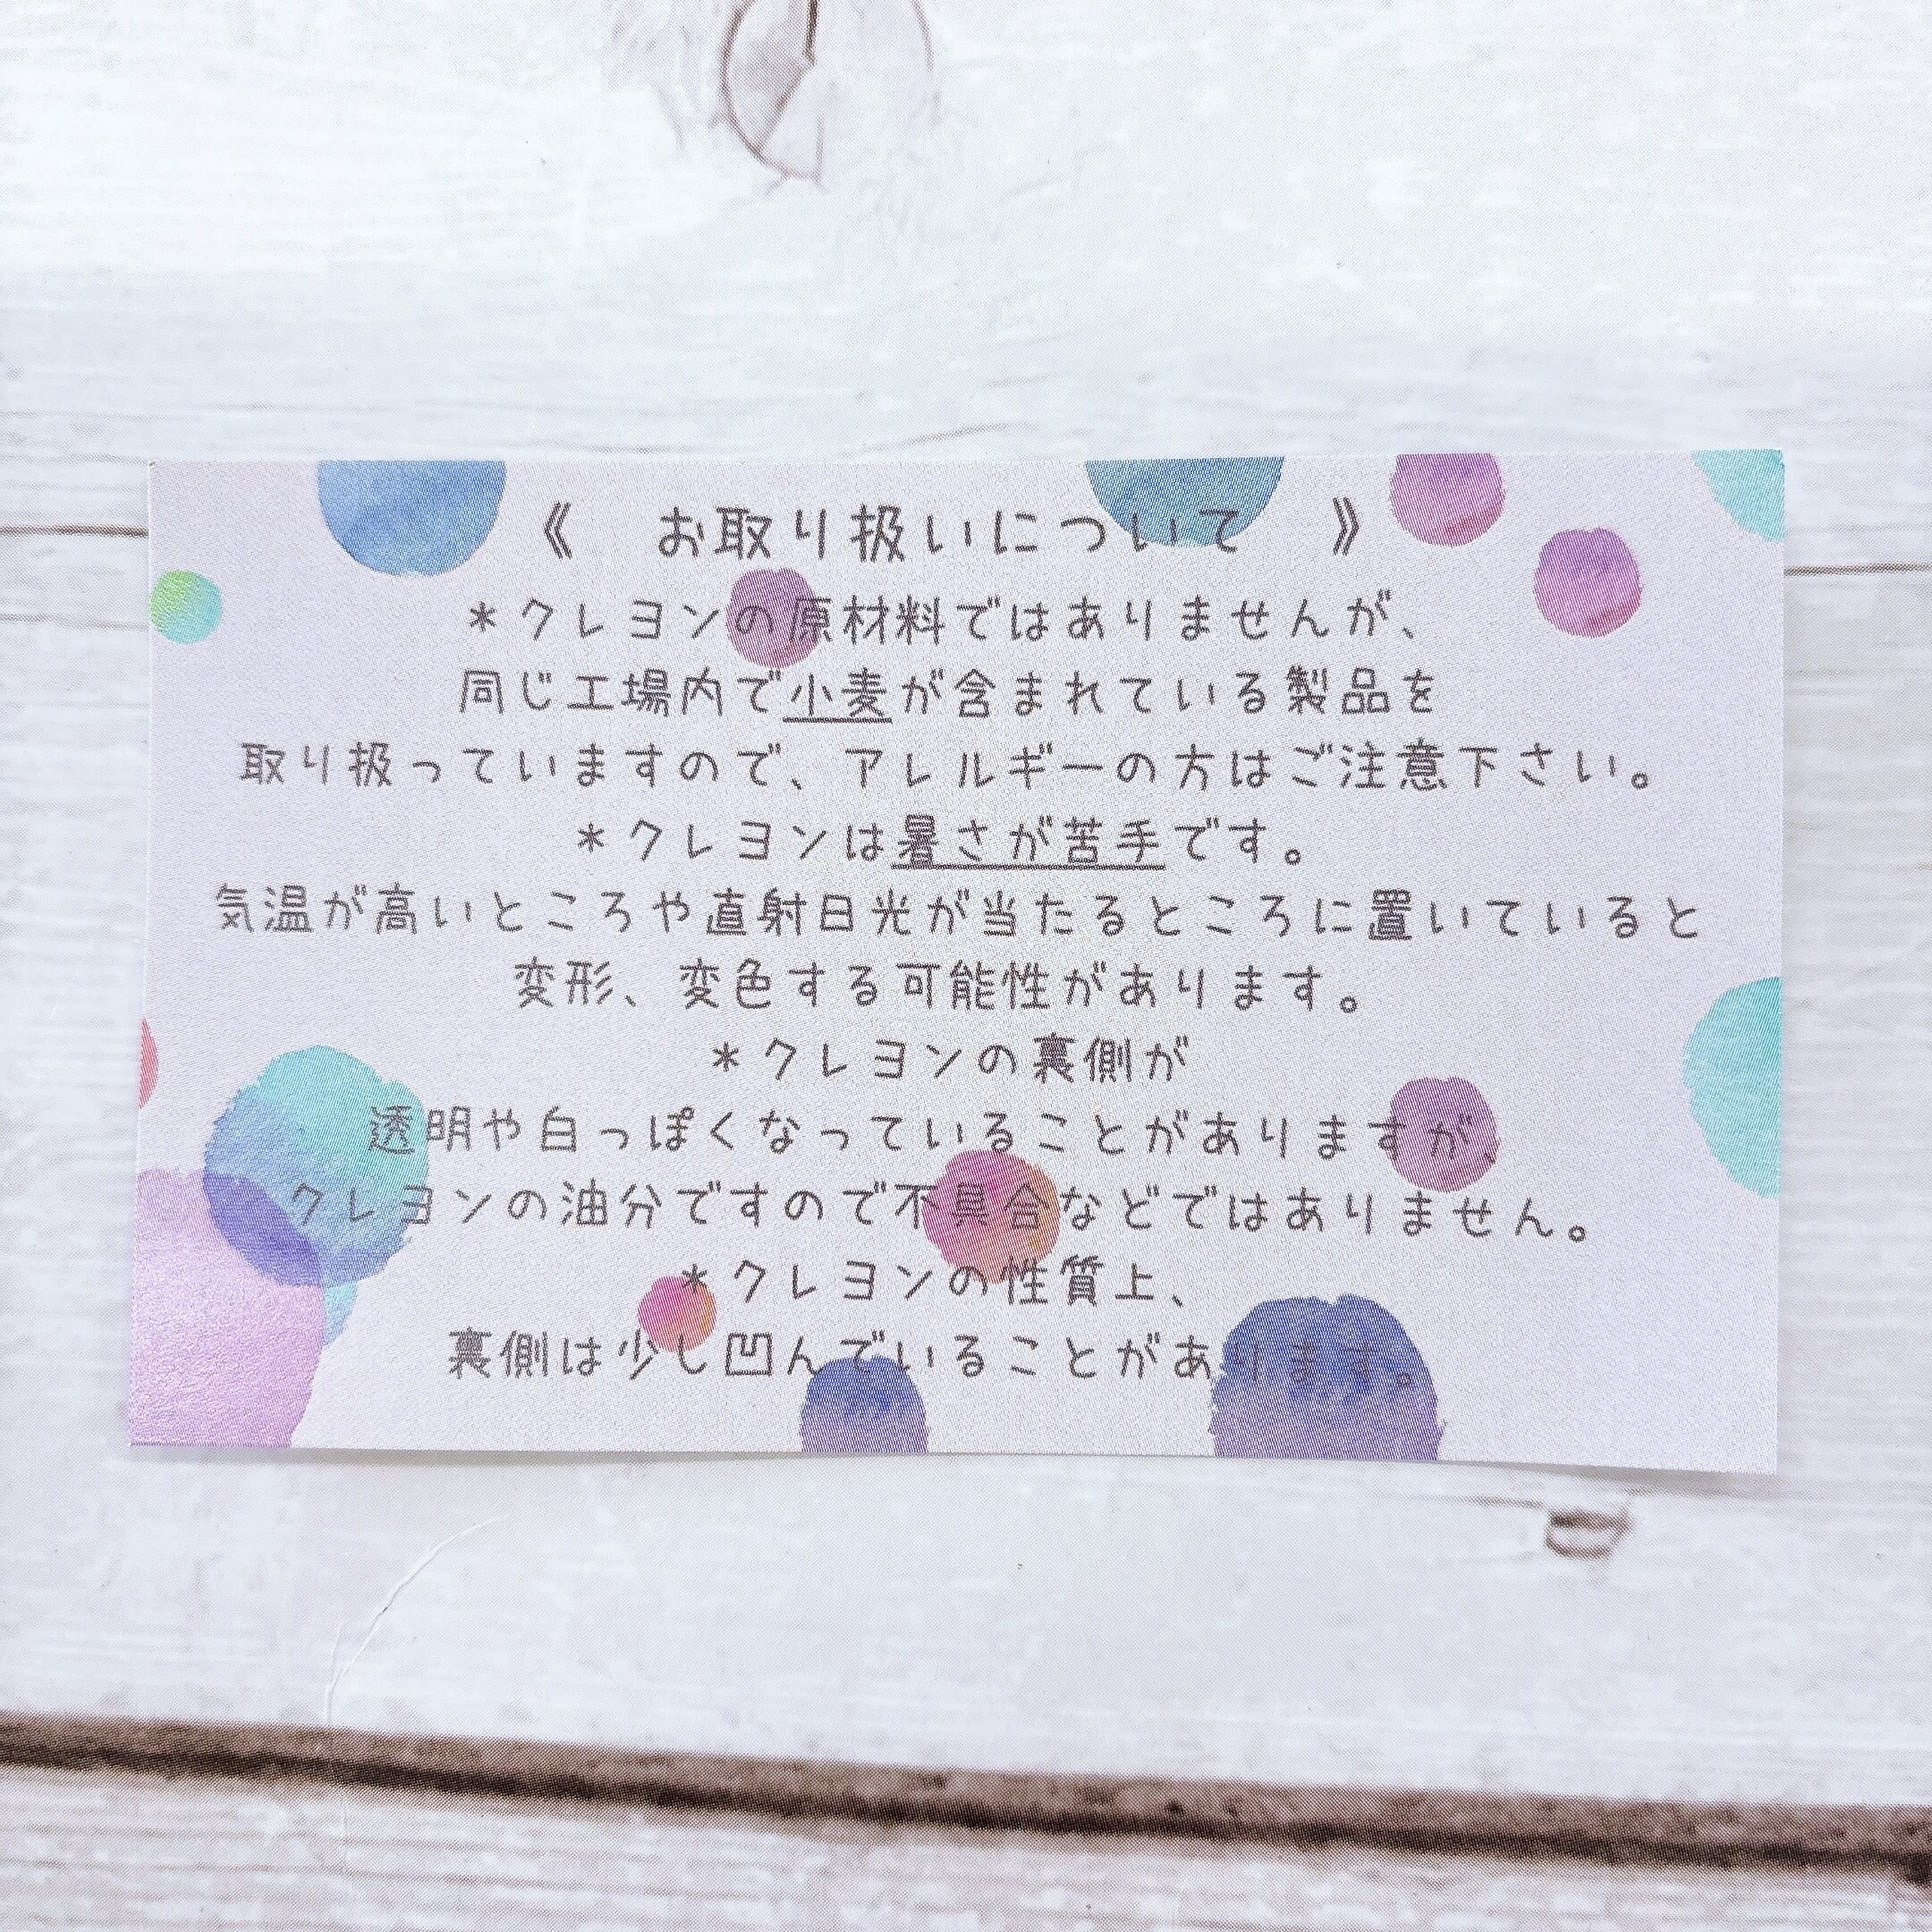 《　お取り扱いについて　》
＊クレヨンの原材料ではありませんが、
同じ工場内で小麦が含まれている製品を
取り扱っていますので、アレルギーの方はご注意下さい。
＊クレヨンは暑さが苦手です。
気温が高いところや直射日光が当たるところに置いていると
変形、変色する可能性があります。
＊クレヨンの裏側が
透明や白っぽくなっていることがありますが、
クレヨンの油分ですので不具合などではありません。
＊クレヨンの性質上、
裏側は少し凹んでいることがあります。